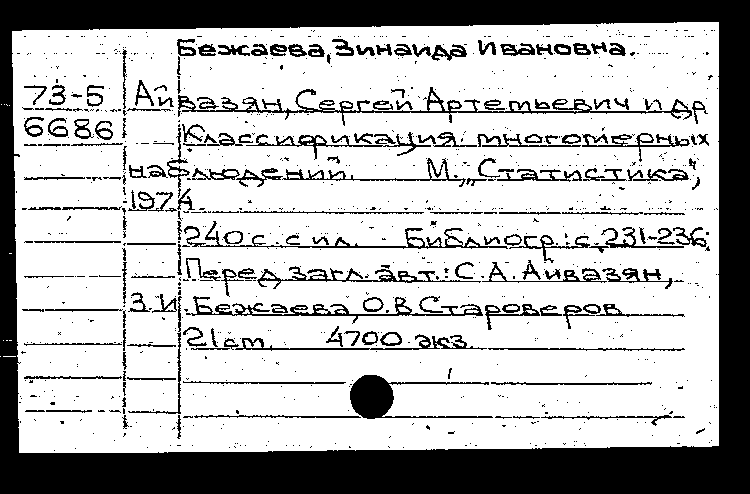 Бежаева, Зинаида Ивановна.
73-5 Айвазян, Сергей Артемьевич и др
6686 Классификация многомерных
наблюдений. М., „Статистика",
1974
240 с. с ил. Библиогр.: с. 231-236.
Перед загл. авт.: С. А. Айвазян,
З. И. Бежаева, О. В. Староверов
21 см. 4700 экз.